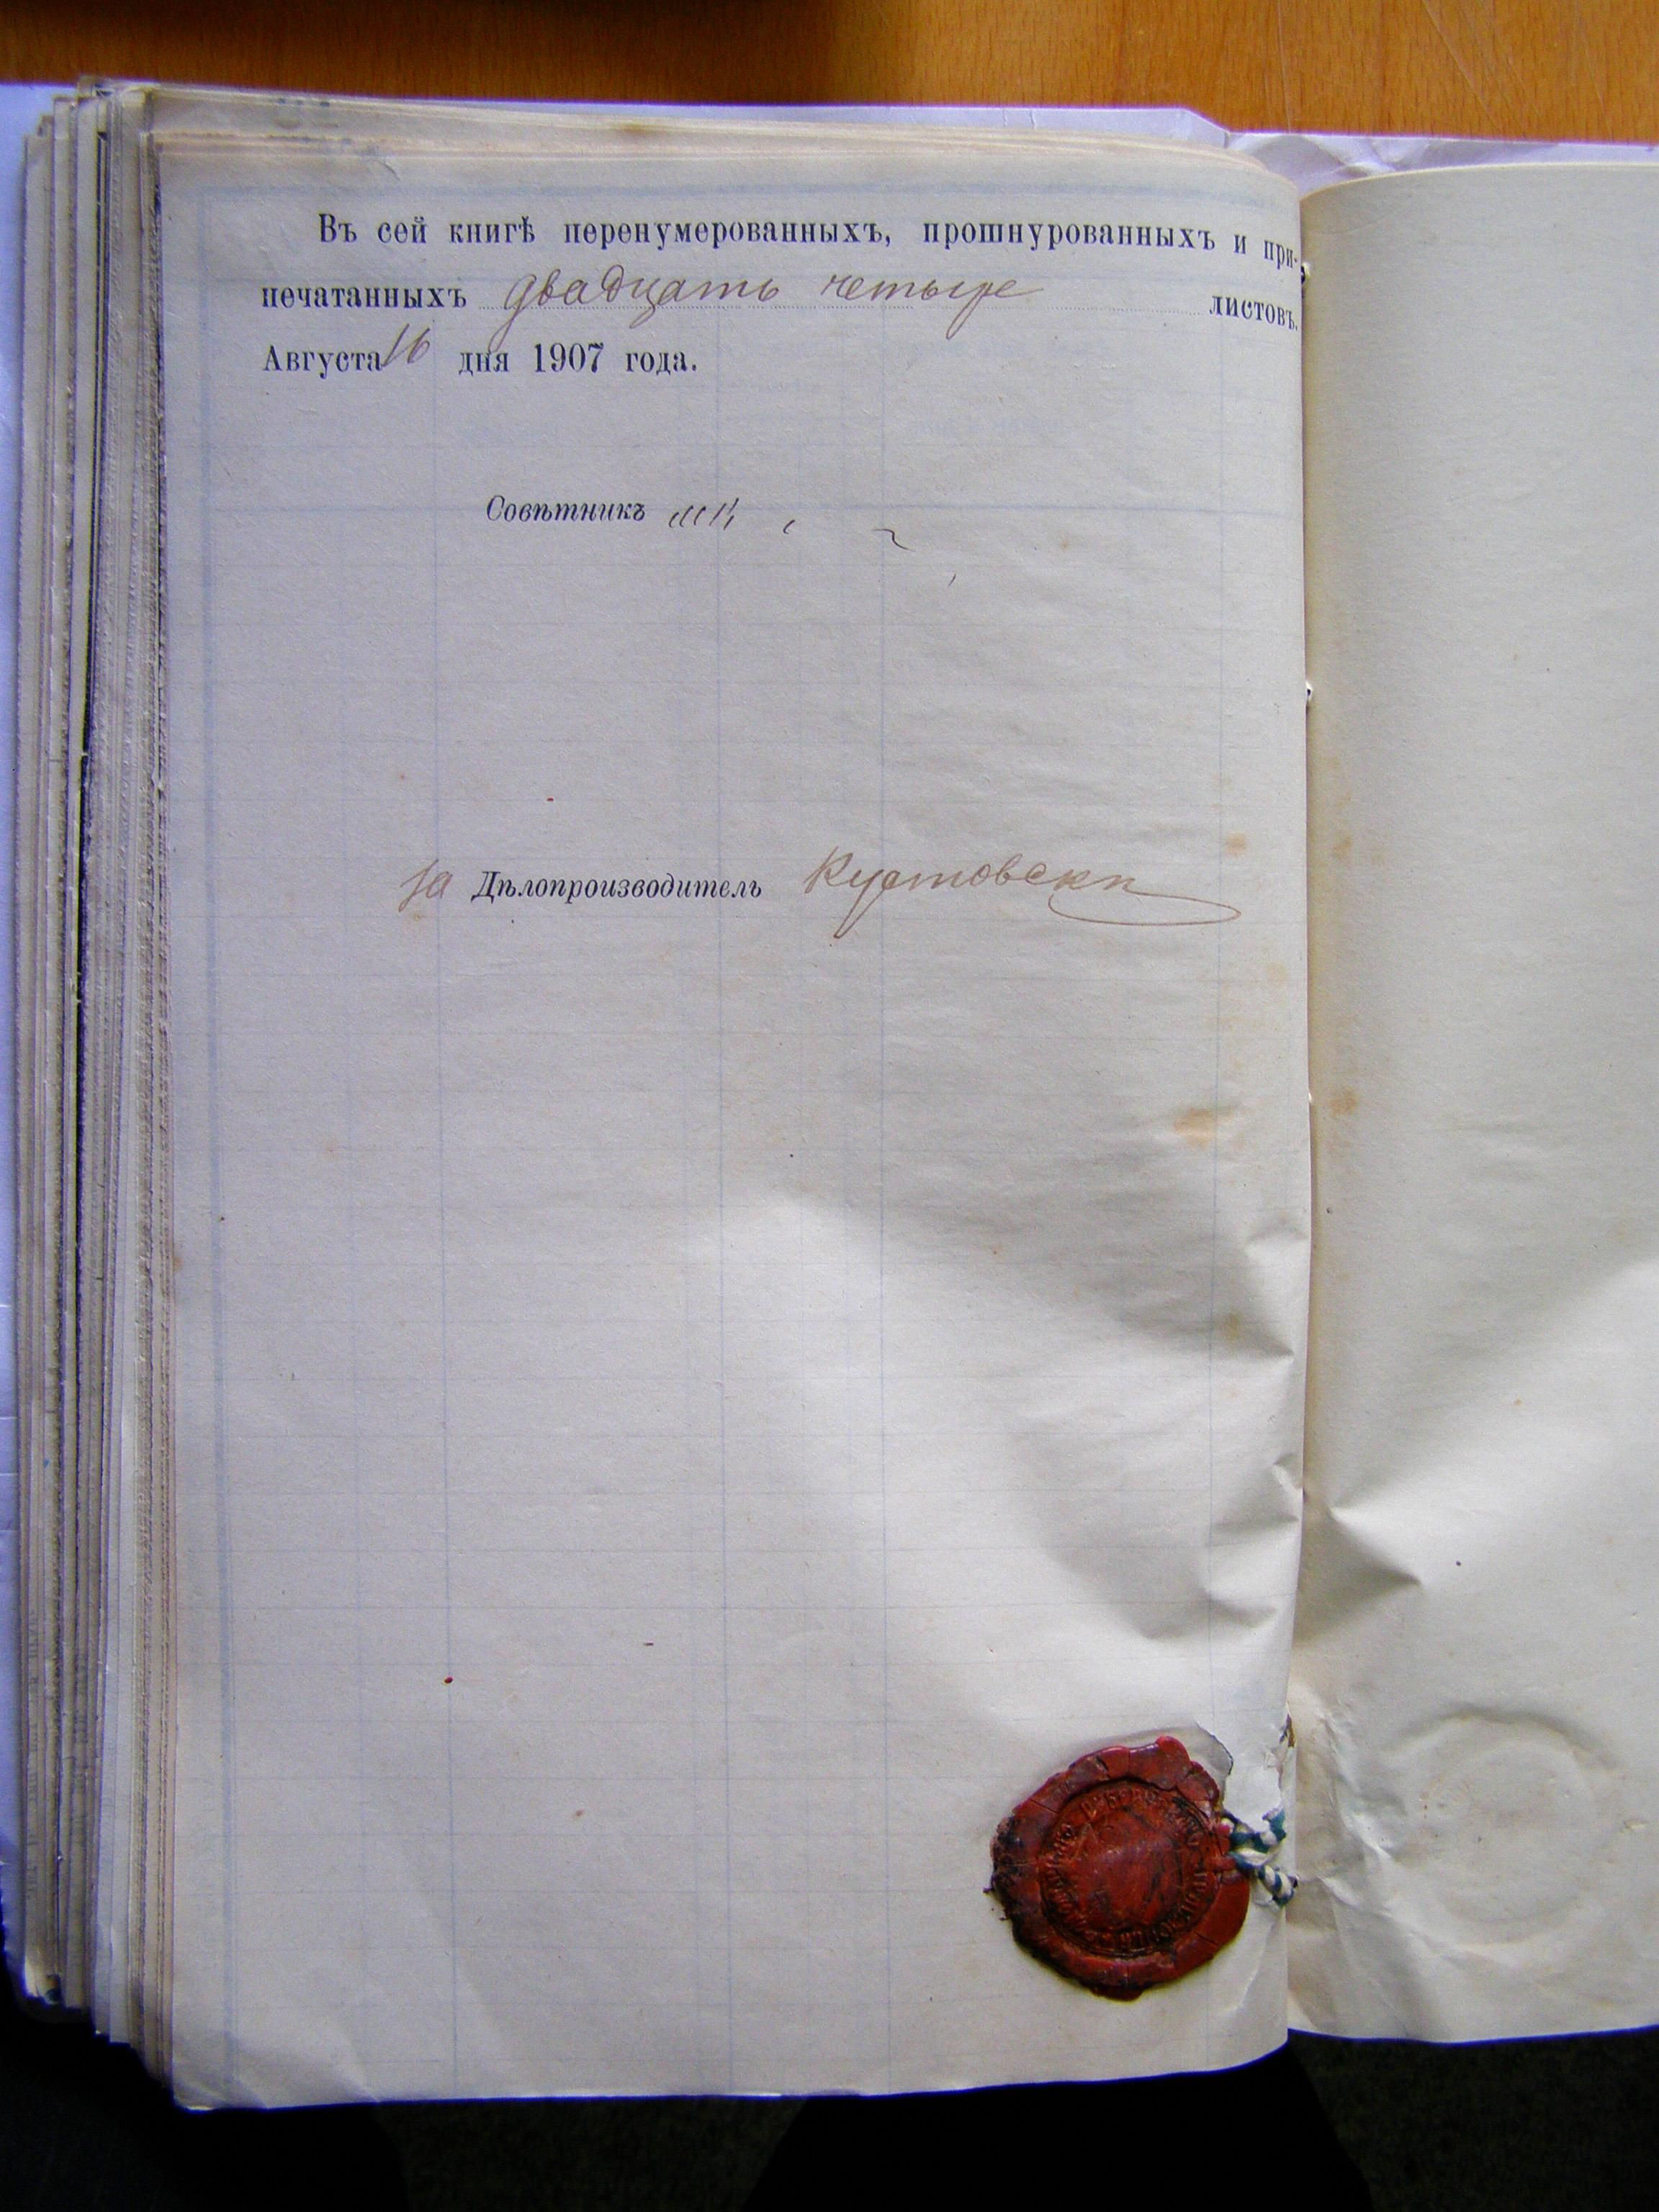 Въ сей книгѣ перенумерованныхъ, прошнурованныхъ и при-
печатанныхъ двадцать четыре листовъ.
Августа 16 дня 1907 года.
Совѣтникъ
за Дѣлопроизводитель